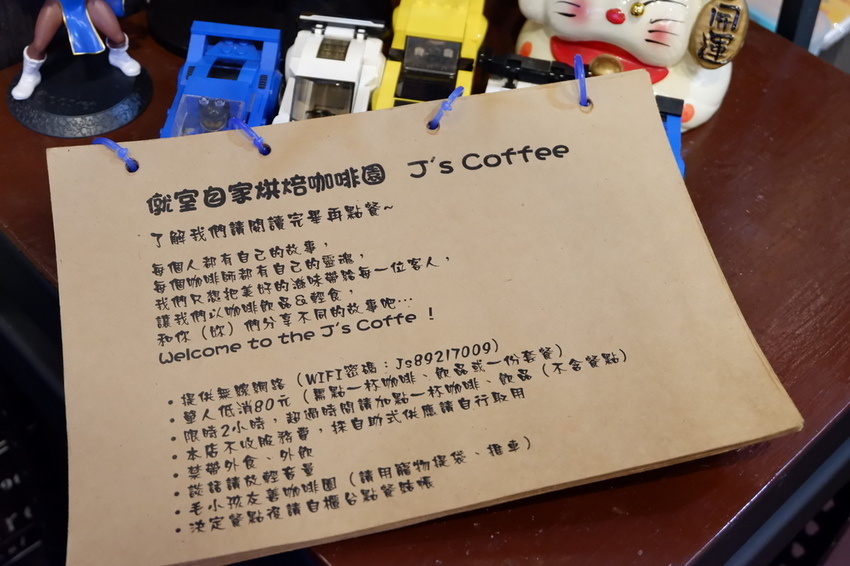 僦室自家烘焙咖啡園 J's Coffee
了解我們請閱讀完畢再點餐~
每個人都有自己的故事,
每個咖啡師都有自己的靈魂,
我們只想把美好的滋味帶給每一位客人,
讓我們以咖啡飲品&輕食,
和你(妳)們分享不同的故事吧...
Welcome to the J's Coffe !
•提供無線網路(WIFI密碼:Js89217009)
•單人低消80元(需點一杯咖啡、飲品或一份套餐)
•限時2小時,超過時間請加點一杯咖啡、飲品(不含餐點)
•本店不收服務費,採自助式供應請自行取用
•禁帶外食、外飲
•談話請放輕音量
•毛小孩友善咖啡園(請用寵物提袋、推車)
•決定餐點後請自櫃台點餐結帳
開運